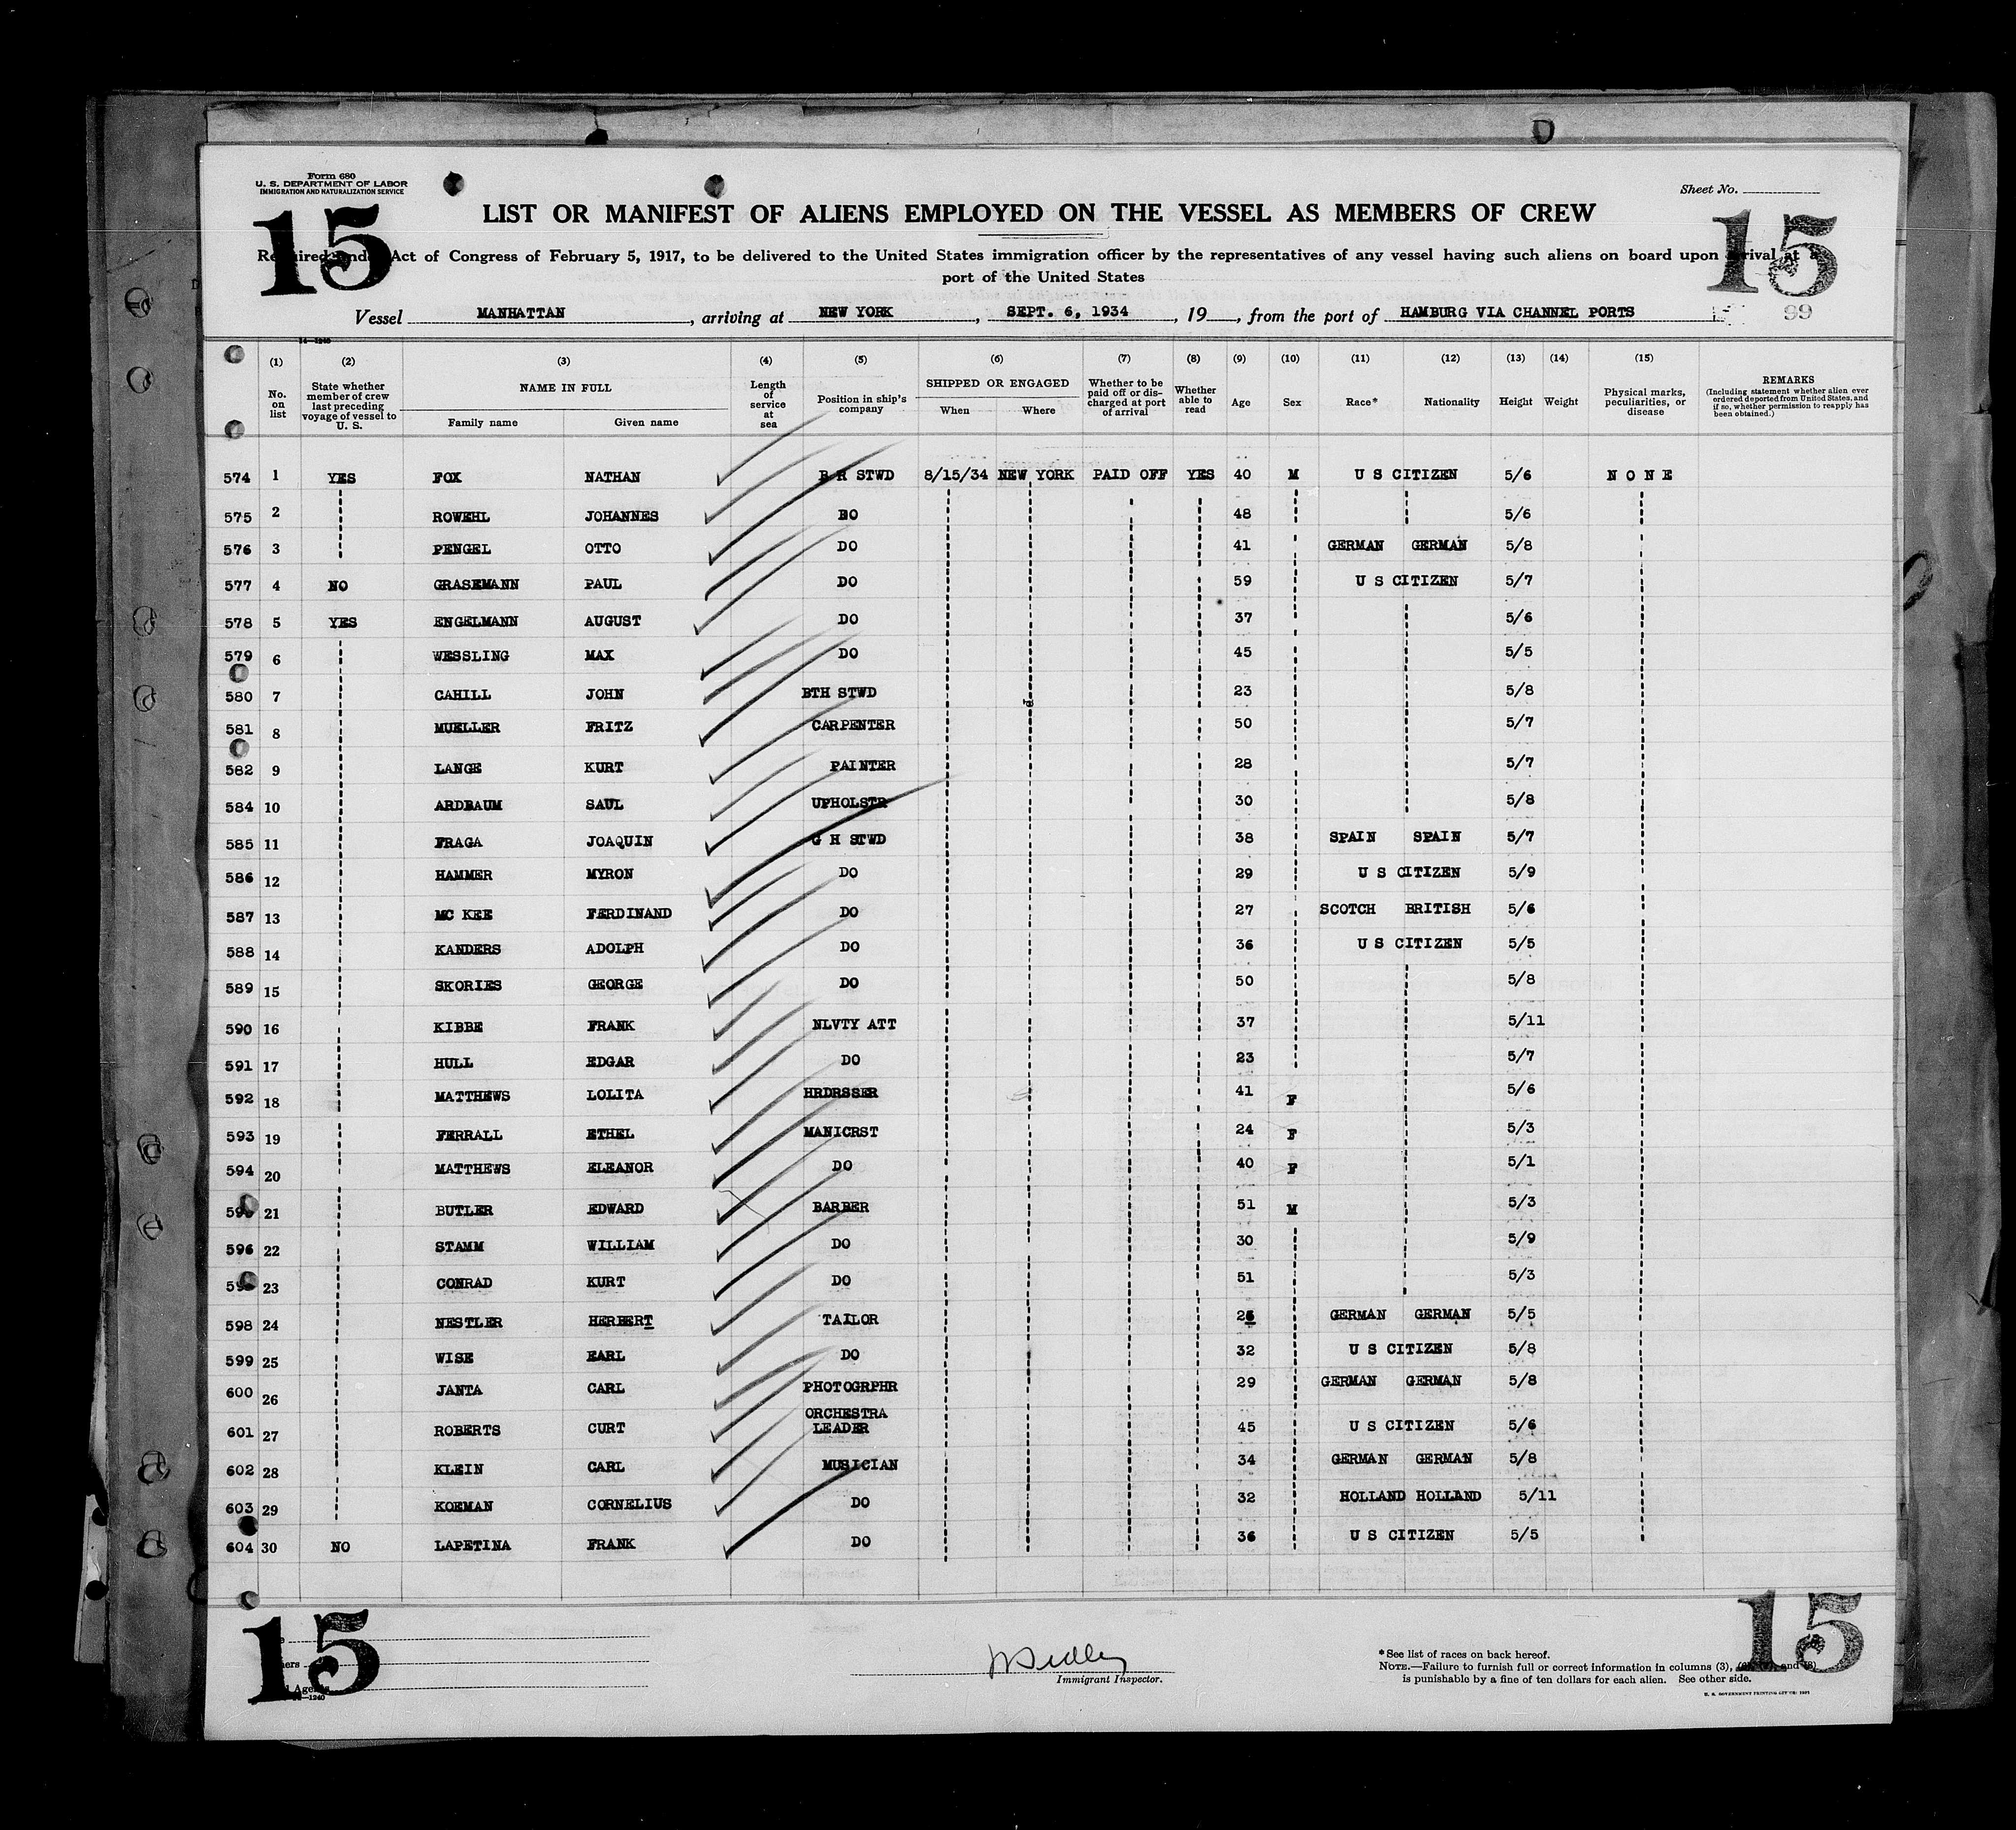 D
Form 680
U. S. DEPARTMENT OF LABOR
IMMIGRATION AND NATURALIZATION SERVICE
Sheet No.
15
15
LIST OR MANIFEST OF ALIENS EMPLOYED ON THE VESSEL AS MEMBERS OF CREW
Required under Act of Congress of February 5, 1917, to be delivered to the United States immigration officer by the representatives of any vessel having such aliens on board upon arrival at a
port of the United States
Vessel MANHATTAN , arriving at NEW YORK , SEPT. 6, 1934 , 19 , from the port of HAMBURG VIA CHANNEL PORTS
99
14—1240
(1) (2) (3) (4) (5) (6) (7) (8) (9) (10) (11) (12) (13) (14) (15)
No. on list
State whether member of crew last preceding voyage of vessel to U. S.
NAME IN FULL
Family name Given name
Length of service at sea
Position in ship's company
SHIPPED OR ENGAGED
When Where
Whether to be paid off or discharged at port of arrival
Whether able to read
Age Sex Race* Nationality Height Weight
Physical marks, peculiarities, or disease
REMARKS
(Including statement whether alien ever ordered deported from United States, and if so, whether permission to reapply has been obtained.)
574 1 YES FOX NATHAN B R STWD 8/15/34 NEW YORK PAID OFF YES 40 M U S CITIZEN 5/6 N O N E
575 2 ROWEHL JOHANNES DO 48 5/6
576 3 PENGEL OTTO DO 41 GERMAN GERMAN 5/8
577 4 NO GRASEMANN PAUL DO 59 U S CITIZEN 5/7
578 5 YES ENGELMANN AUGUST DO 37 5/6
579 6 WESSLING MAX DO 45 5/5
580 7 CAHILL JOHN BTH STWD 23 5/8
581 8 MUELLER FRITZ CARPENTER 50 5/7
582 9 LANGE KURT PAINTER 28 5/7
584 10 ARDBAUM SAUL UPHOLSTR 30 5/8
585 11 FRAGA JOAQUIN G H STWD 38 SPAIN SPAIN 5/7
586 12 HAMMER MYRON DO 29 U S CITIZEN 5/9
587 13 MC KEE FERDINAND DO 27 SCOTCH BRITISH 5/6
588 14 KANDERS ADOLPH DO 36 U S CITIZEN 5/5
589 15 SKORIES GEORGE DO 50 5/8
590 16 KIBBE FRANK NLVTY ATT 37 5/11
591 17 HULL EDGAR DO 23 5/7
592 18 MATTHEWS LOLITA HRDRSSER 41 F 5/6
593 19 FERRALL ETHEL MANICRST 24 F 5/3
594 20 MATTHEWS ELEANOR DO 40 F 5/1
21 BUTLER EDWARD BARBER 51 M 5/3
596 22 STAMM WILLIAM DO 30 5/9
23 CONRAD KURT DO 51 5/3
598 24 NESTLER HERBERT TAILOR GERMAN GERMAN 5/5
599 25 WISE EARL DO 32 U S CITIZEN 5/8
600 26 JANTA CARL PHOTOGRPHR 29 GERMAN GERMAN 5/8
601 27 ROBERTS CURT ORCHESTRA LEADER 45 U S CITIZEN 5/6
602 28 KLEIN CARL MUSICIAN 34 GERMAN GERMAN 5/8
603 29 KOEMAN CORNELIUS DO 32 HOLLAND HOLLAND 5/11
604 30 NO LAPETINA FRANK DO 36 U S CITIZEN 5/5
15
15
Immigrant Inspector.
* See list of races on back hereof.
NOTE.—Failure to furnish full or correct information in columns (3), and (8)
is punishable by a fine of ten dollars for each alien. See other side.